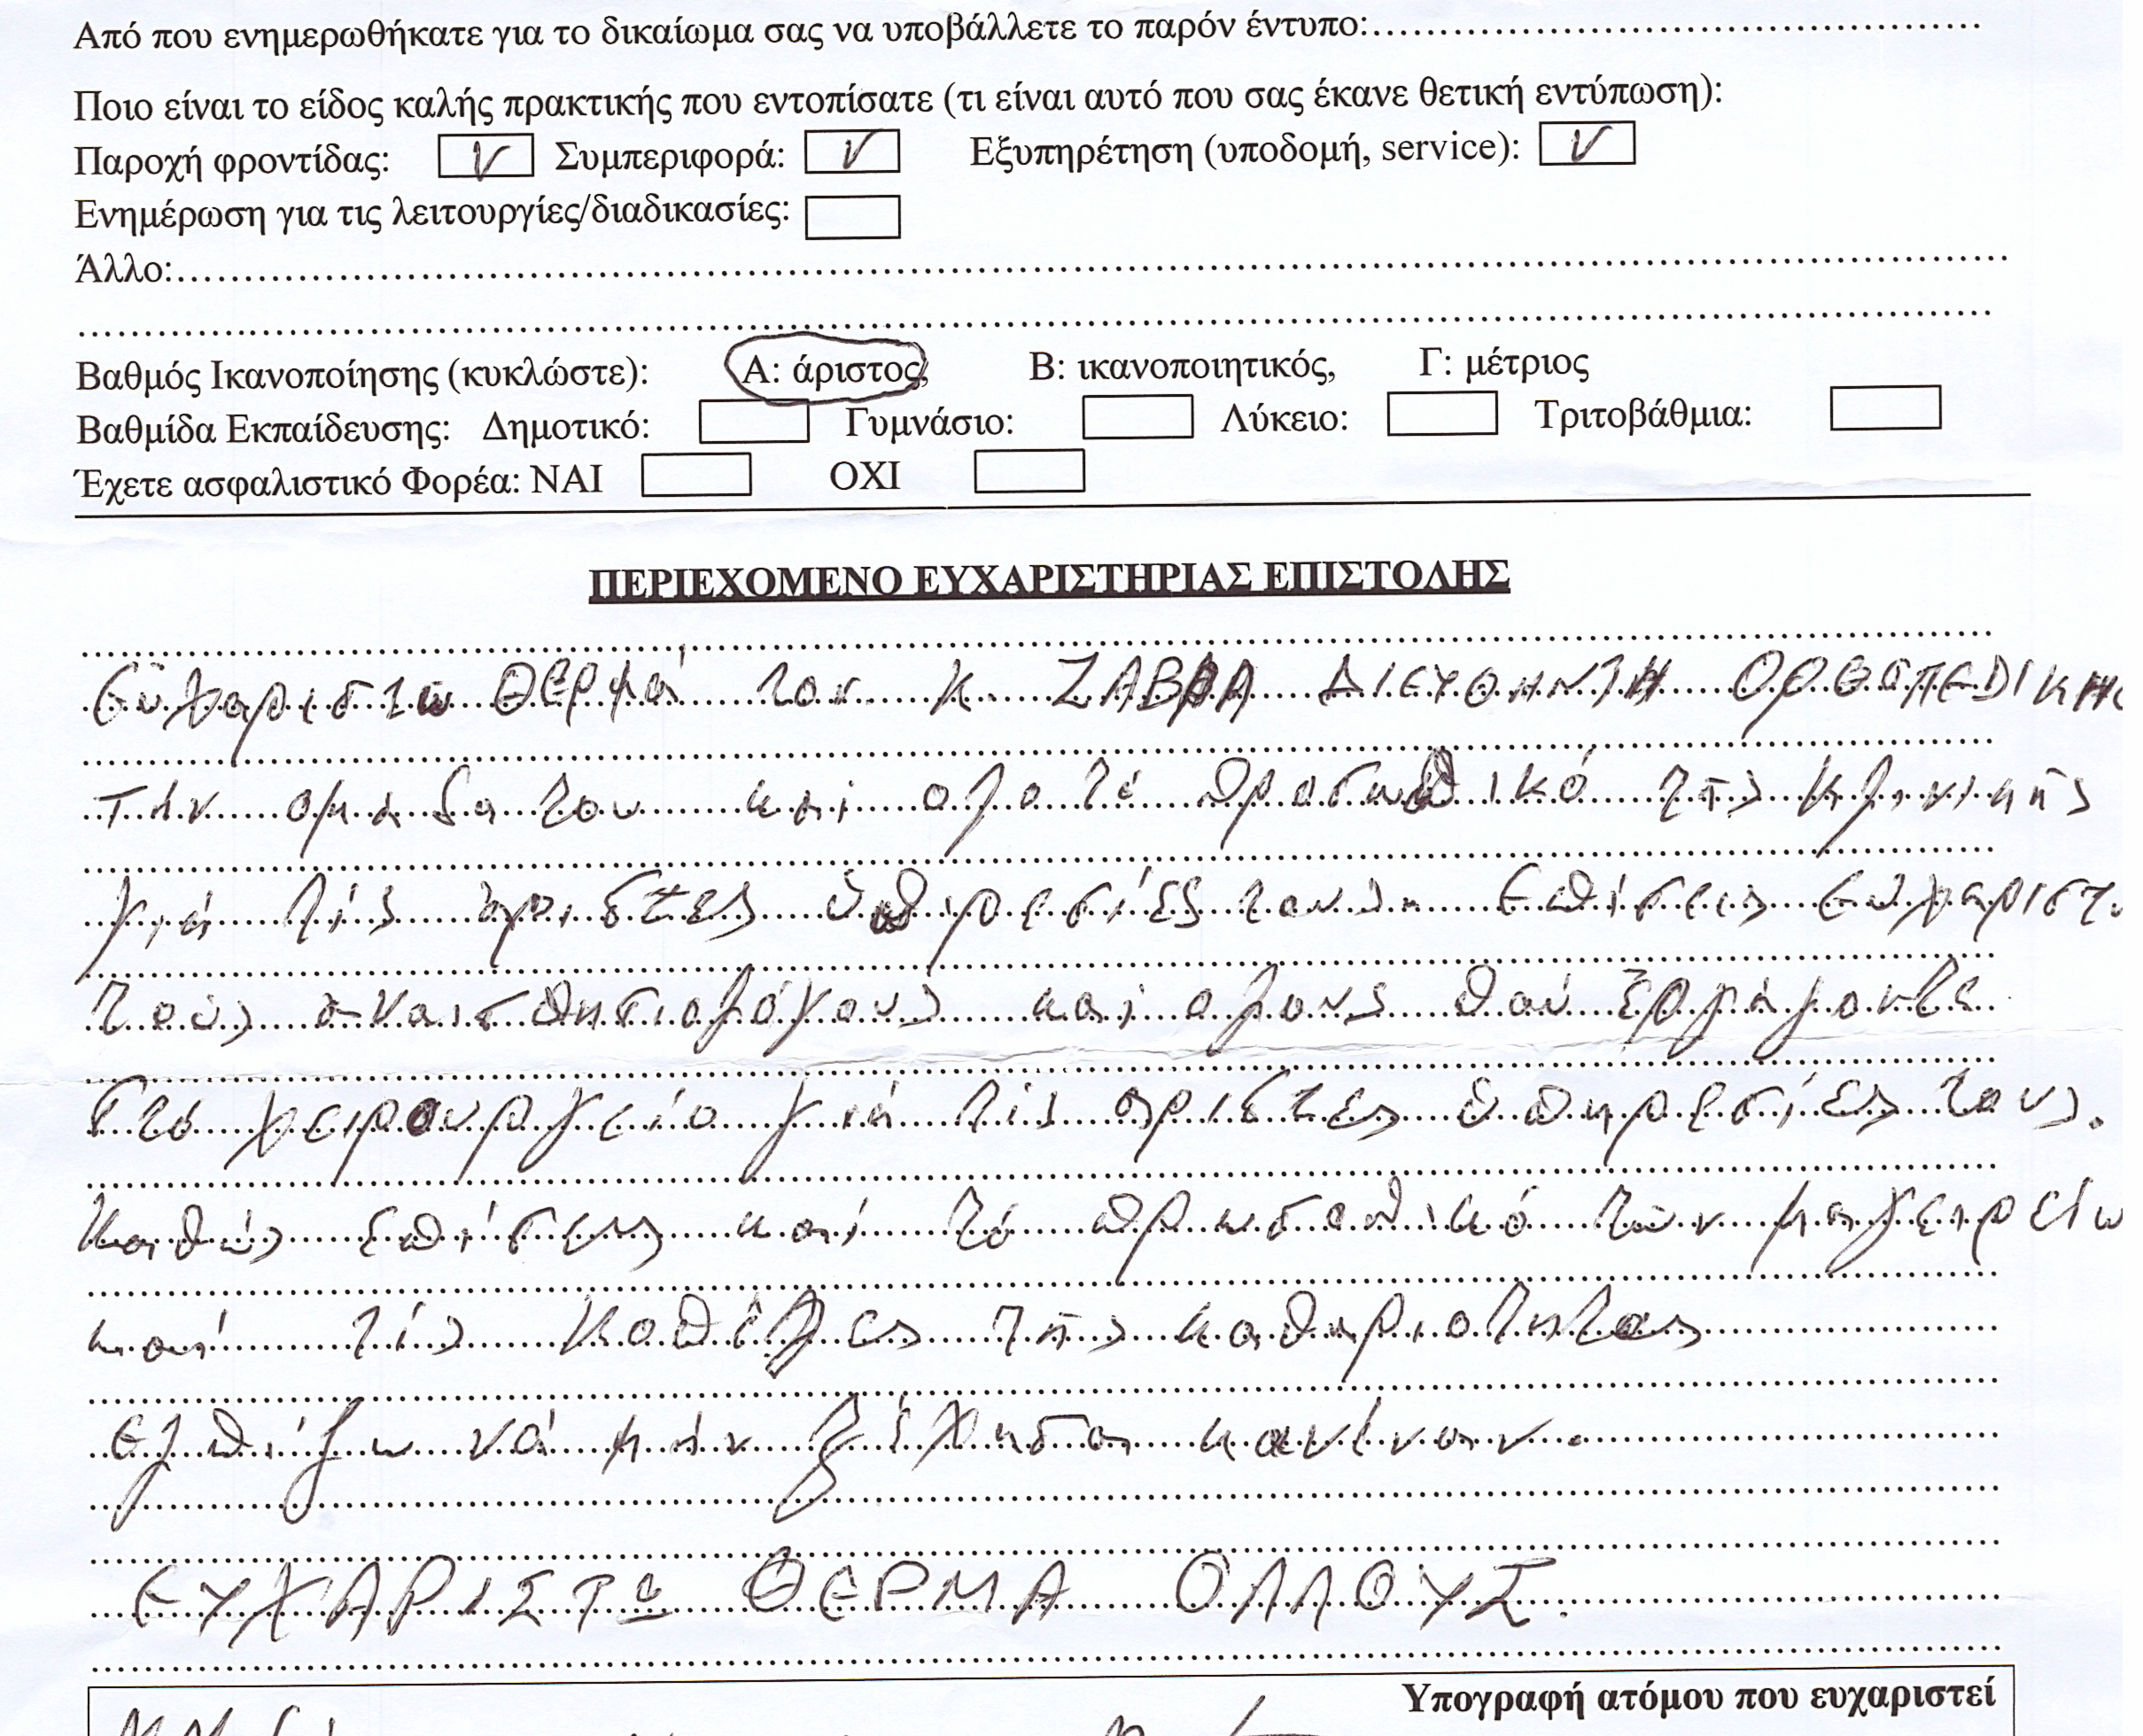 Από που ενημερωθήκατε για το δικαίωμα σας να υποβάλλετε το παρόν έντυπο:
Ποιο είναι το είδος καλής πρακτικής που εντοπίσατε (τι είναι αυτό που σας έκανε θετική εντύπωση):
Παροχή φροντίδας: V Συμπεριφορά: V Εξυπηρέτηση (υποδομή, service): V
Ενημέρωση για τις λειτουργίες/διαδικασίες:
Άλλο:
Βαθμός Ικανοποίησης (κυκλώστε): Α: άριστος, Β: ικανοποιητικός, Γ: μέτριος
Βαθμίδα Εκπαίδευσης: Δημοτικό: Γυμνάσιο: Λύκειο: Τριτοβάθμια:
Έχετε ασφαλιστικό Φορέα: ΝΑΙ ΟΧΙ
ΠΕΡΙΕΧΟΜΕΝΟ ΕΥΧΑΡΙΣΤΗΡΙΑΣ ΕΠΙΣΤΟΛΗΣ
Εύχαριστω Θερμά τον κ. ΣΑΒΒΑ ΔΙΕΥΘΗΝΤΗ ΟΡΘΟΠΕΔΙΚΗς
την ομαδα του και ολο τό προσωπικό τῆς κλινικῆς
γιά τίς άριστες ύπιρεσίες τους. Επίσεις Ευχαριστω
τούς άναισθησιολόγους και ολους πού έργάζοντε
στό χειρουργείο γιά τίς αριστες ύπηρεσίες τους.
Καθώς επίσεις καί τό πρωσοπικό τῶν μαγειρείω
καί τίς Κοπέλες τῆς καθηριοτητας
Ελπίζω νά μήν ξέχησα κανέναν.
ΕΥΧΑΡΙΣΤω ΘΕΡΜΑ ΟΛΛΟΥΣ.
Υπογραφή ατόμου που ευχαριστεί